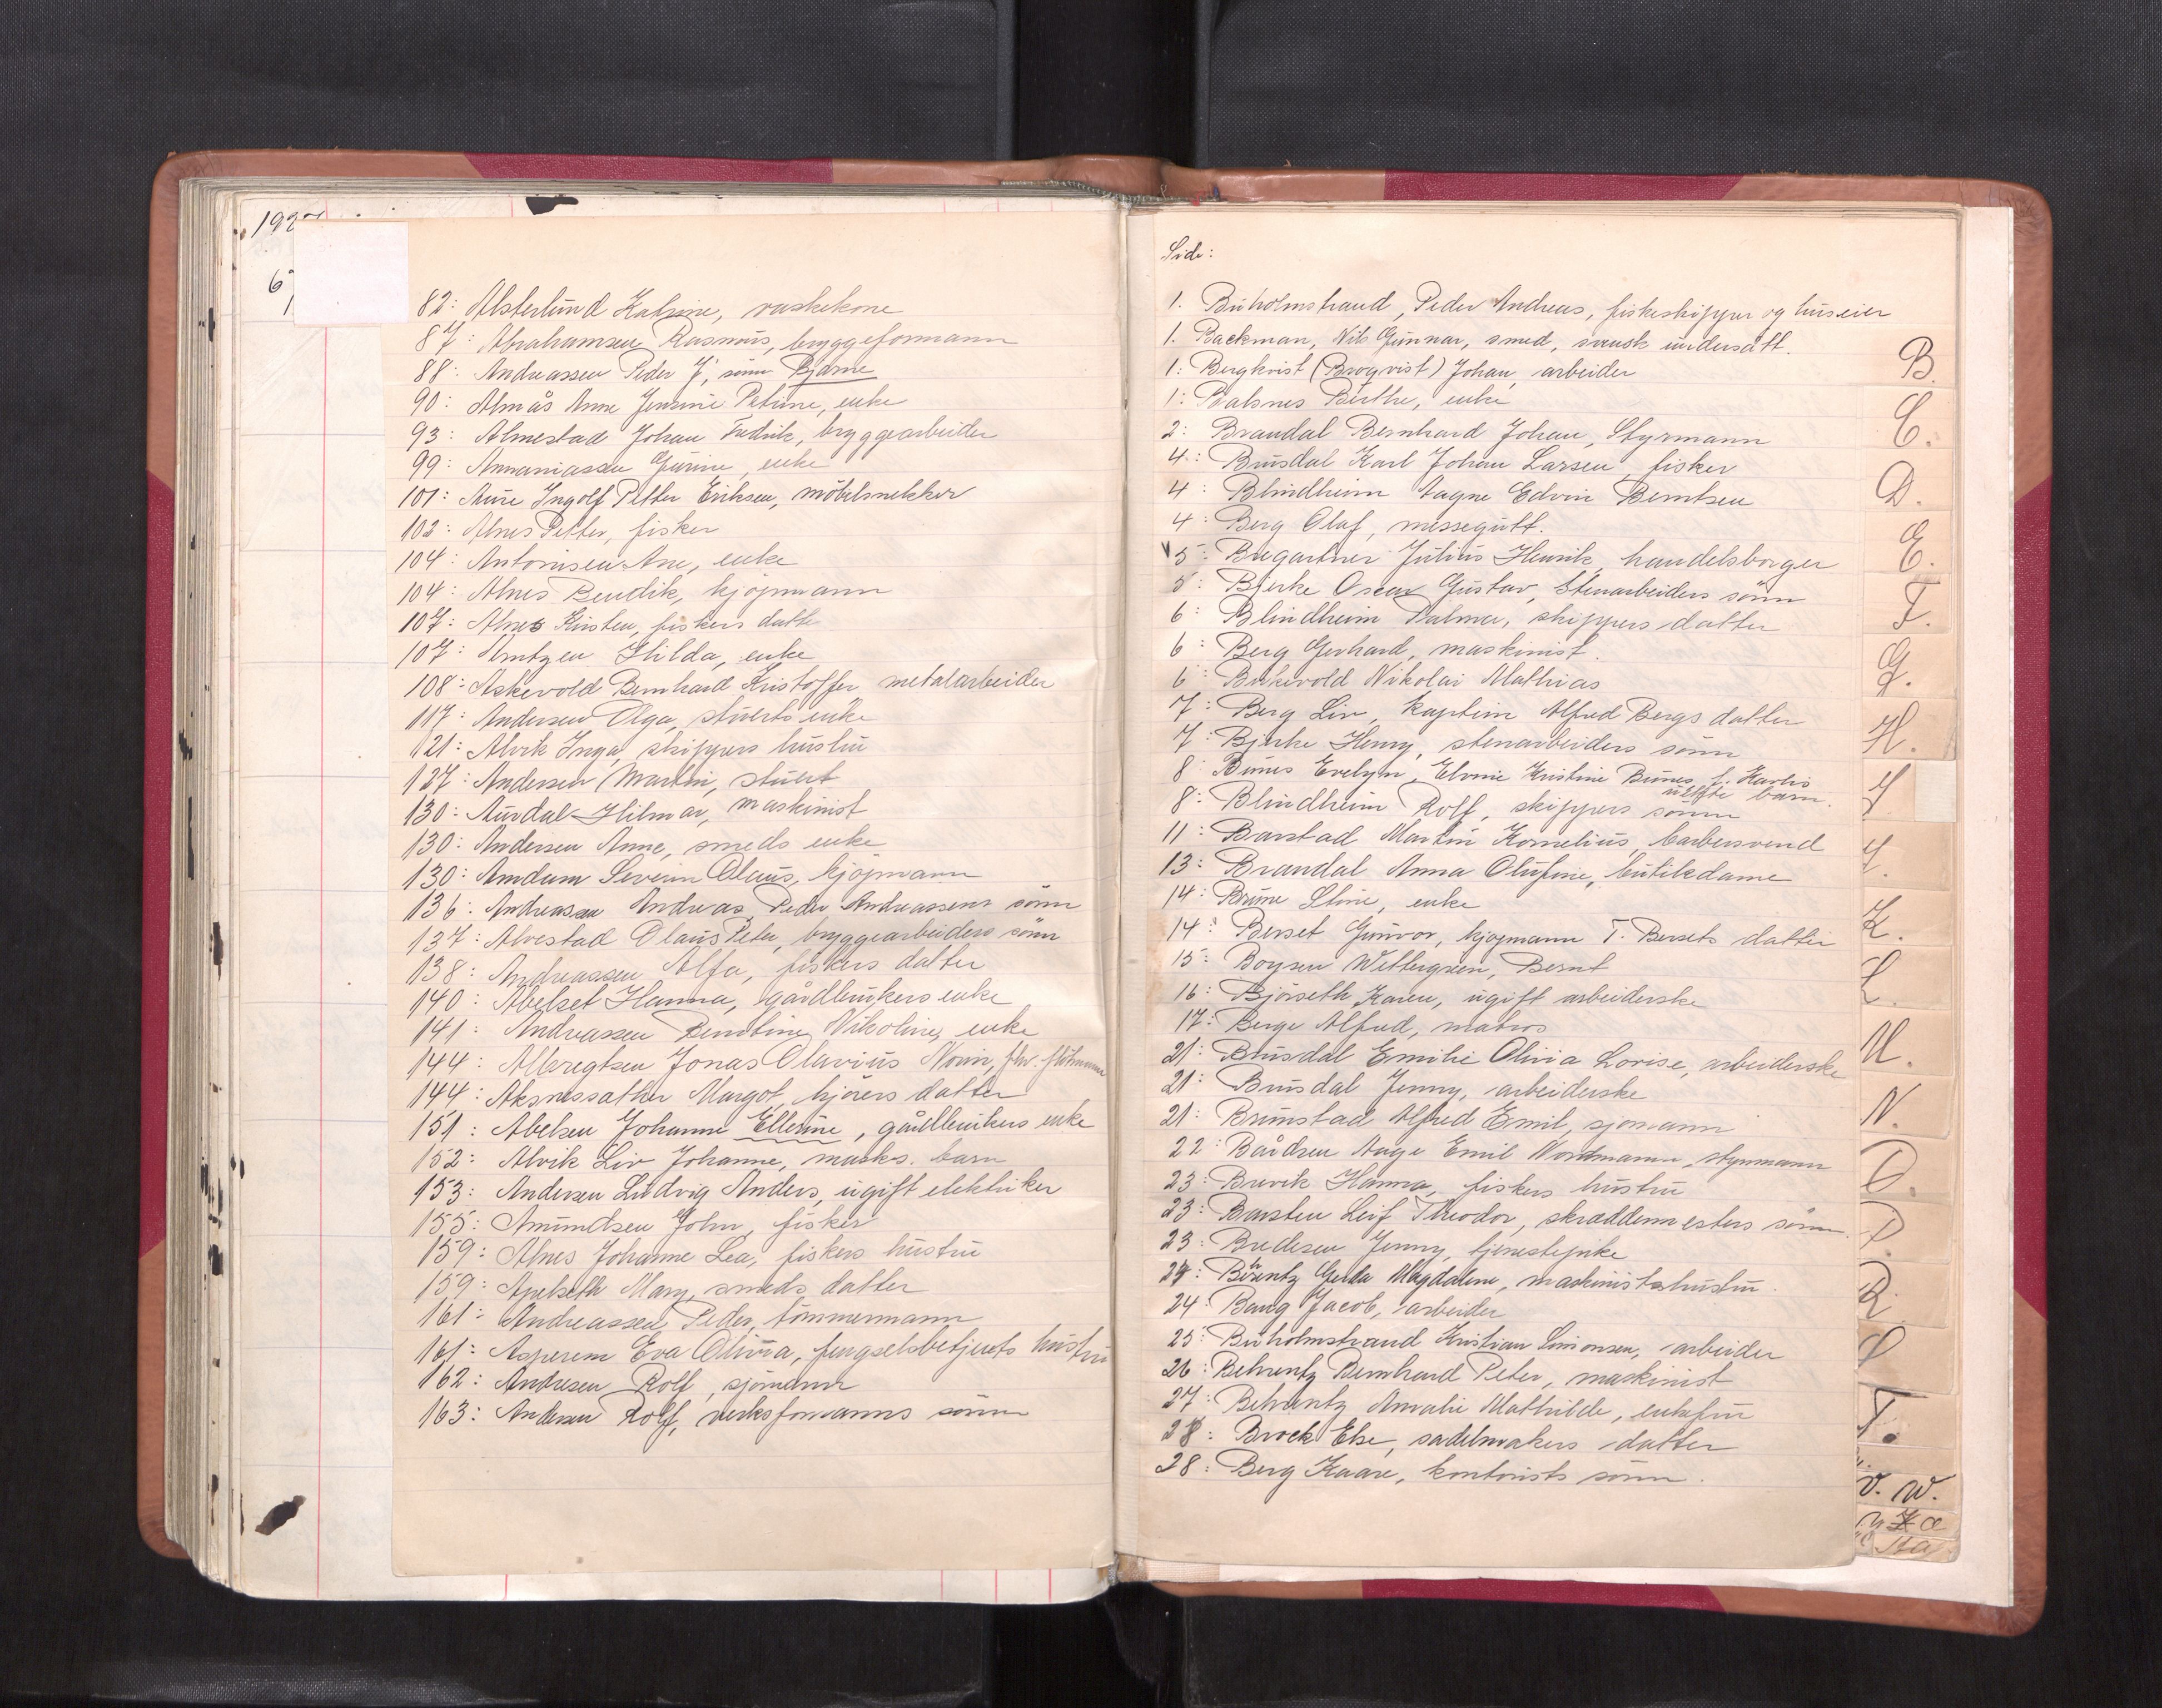 192
6
82: Alsterlund Katrine, vaskekone
87: Abrahamsen Rasmus, bryggeformann
88: Andreassen Peder J, sönn Bjarne
90: Almås Anne Jensine Petrine, enke
93: Almestad Johan Fredrik, bryggearbeider
99: Annaniassen Gurine, enke
101: Aure Ingolf Petter Eriksen, möbelsnekker
103: Alnes Petter, fisker
104: Antonisen Ane, enke
104: Alnes Bendik, kjöpmann
107: Alnes Kirsten, fiskers datter
107: Arntzen Hilda, enke
108: Askevold Bernhard Kristoffer metalarbeider
117: Andersen Olga, stuerts enke
121: Alvik Inga, skippers hustru
127: Andersen Martin, stuert
130: Aurdal Hilmar, maskinist
130: Andersen Anne, smeds enke
130: Amdam Severin Olaus, kjöpmann
136: Andreassen Andreas, Peder Andreassens sönn
137: Alvestad Olaus Peter, bryggearbeiders sönn
138: Andreassen Alfa, fiskers datter
140: Abelset Hanna, gårdbrukers enke
141: Andreassen Berntine Nikoline, enke
144: Albregtsen Jonas Olavius Norin, fhv.
144: Aksnessæther Margot, kjörers datter
151: Abelsen Johanne Ellerine, gårdbrukers enke
152: Alvik Liv Johanne, masks. barn
153: Andersen Ludvig Anders, ugift elektriker
155: Amundsen John, fisker
159: Alnes Johanne Lea, fiskers hustru
159: Apelseth Mary, smeds datter
161: Andreassen Peder, tömmermann
161: Asperem Eva Olivia, fengselsbetjents hustru
162: Andresen Rolf, sjömann
163: Andersen Rolf, verksformanns sönn
Side:
1. Buholmstrand, Peder Andreas, fiskeskipper og huseier
1. Backman, Nils Gunnar, smed, svensk undersått.
1: Bergkvist (Broqvist) Johan, arbeider
1: Balsnes Birthe, enke
2: Brandal Bernhard Johan, Styrmann
4: Brusdal Karl Johan Larsen, fisker
4: Blindheim Aagne Edvin Berntsen
4: Berg Olaf, messegutt.
5: Bugartner Julius Henrik, handelsborger
5: Bjerke Oscar Gustav, Stenarbeiders sönn
6: Blindheim Palma, skippers datter
6: Berg Gerhard, maskinist.
6: Birkevold Nikolai Mathias
7: Berg Liv, kaptein Alfred Bergs datter
7: Bjerke Henry, stenarbeiders sönn
8: Bunes Evelyn, Elvine Kristine Bunes, f. Karlis
uekte barn.
8: Blindheim Rolf, skippers sönn
11: Barstad Martin Kornelius, barbersvend
13: Brandal Anna Olufine, butikdame
14: Brune Stine, enke
14: Berset Gunvor, kjøpmann T. Bersets datter
15: Boysen Wettergreen, Bernt
16: Björseth Karen, ugift arbeiderske
17: Berge Alfred, matros
21: Brusdal Emilie Olivia Lovise, arbeiderske
21: Brusdal Jenny, arbeiderske
21: Brunstad Alfred Emil, sjömann
22: Bårdsen Aage Emil Nordmann, styrmann
23: Brevik Hanna, fiskers hustru
23: Barsten Leif Theodor, skreddermesters sönn.
23: Bredesen Jenny, tjenestepike
24: Bérentz Gerda Magdalene, maskinistshustru.
24: Bang Jacob, arbeider
25: Buholmstrand Kristian Simonsen, arbeider
26: Behrentz Bernhard Peter, maskinist
27: Behrentz Amalie Mathilde, enkefru
28: Brock Else, sadelmakers datter
28: Berg Kaare, kontorists sönn.
B.
C.
D.
E.
F.
G.
H.
I
J.
K.
L.
M.
N.
O.
P.
R.
S
T.
V. W.